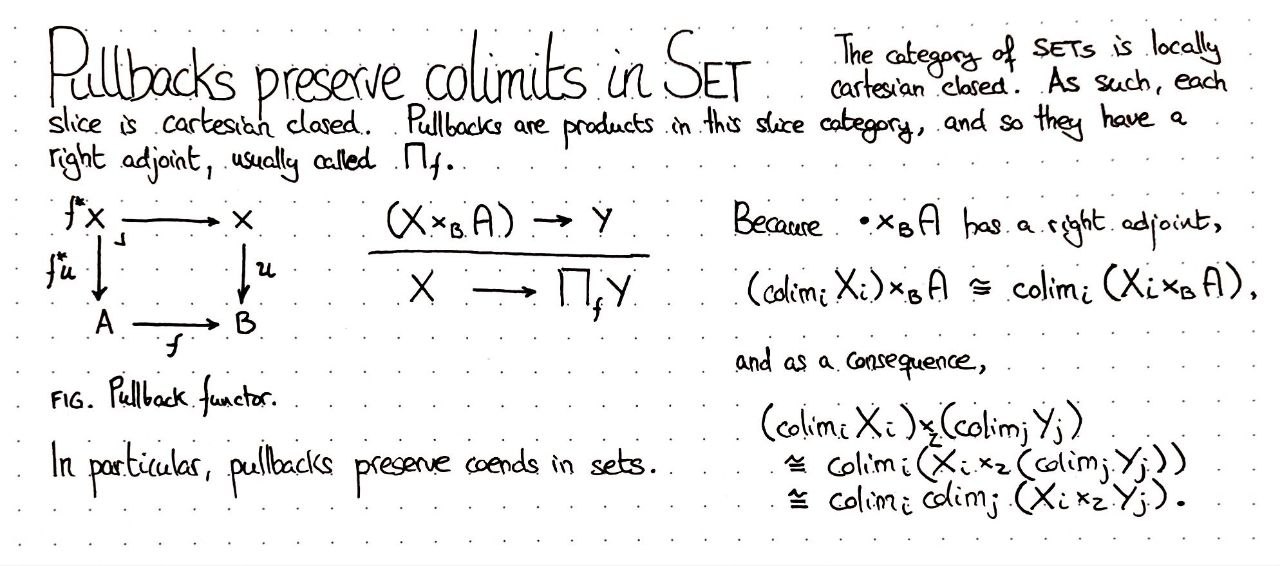 Pullbacks preserve colimits in SET
The category of SETs is locally
cartesian closed. As such, each
slice is cartesian closed. Pullbacks are products in this slice category, and so they have a
right adjoint, usually called Π_f.
f*X → X
f*u ↓ ⌟ ↓ u
A → B
f
FIG. Pullback functor.
(X ×_B A) → Y
X → Π_f Y
Because •×_B A has a right adjoint,
(colim_i X_i) ×_B A ≅ colim_i (X_i ×_B A),
and as a consequence,
(colim_i X_i) ×_Z (colim_j Y_j)
≅ colim_i (X_i ×_Z (colim_j Y_j))
≅ colim_i colim_j (X_i ×_Z Y_j).
In particular, pullbacks preserve coends in sets.